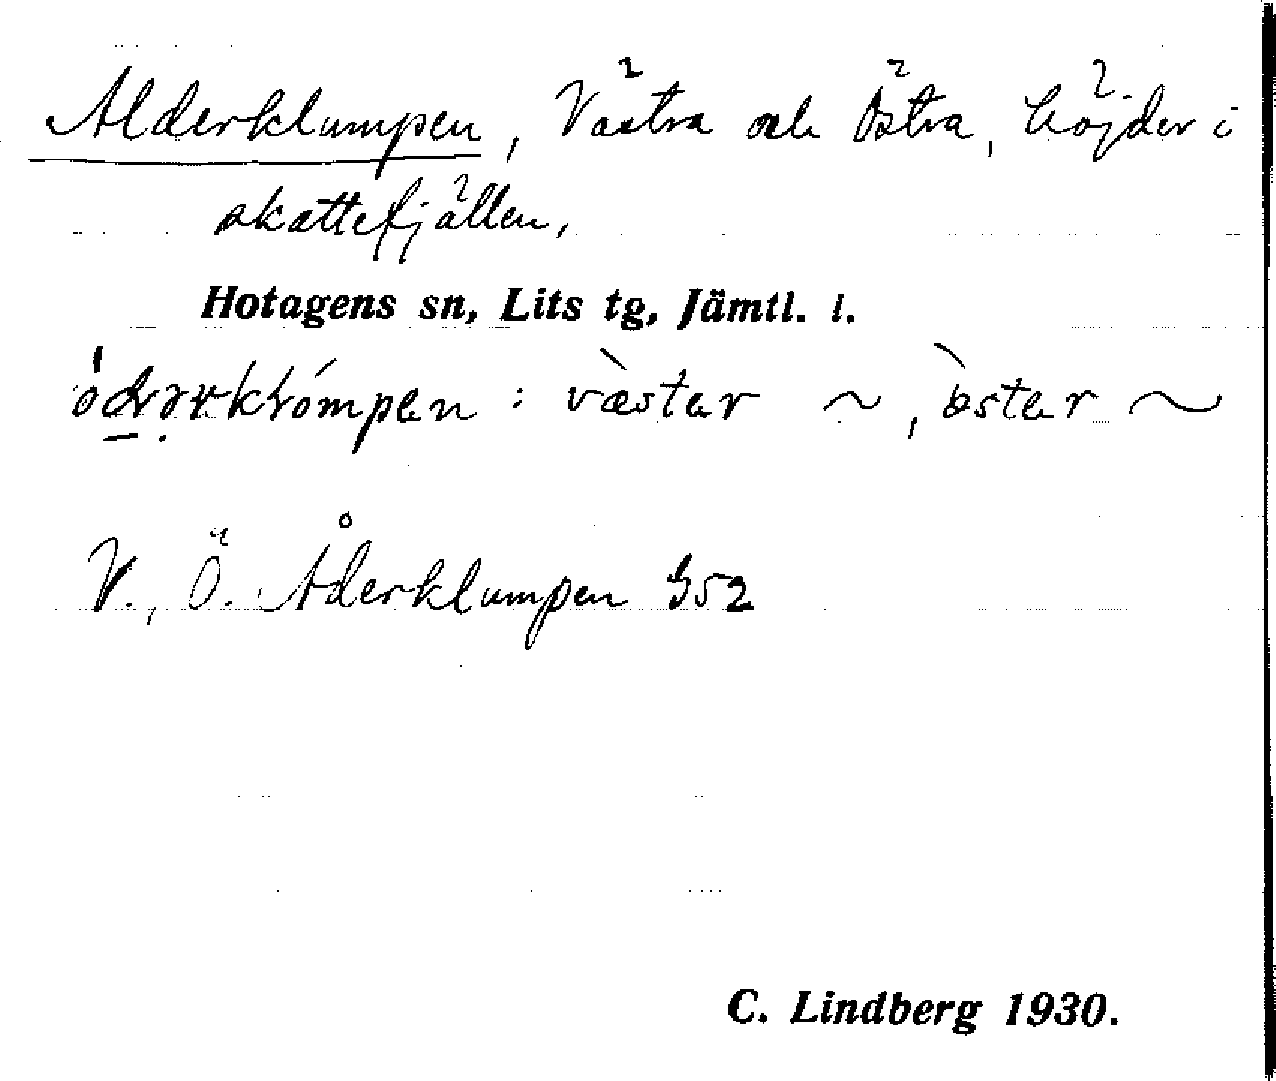 Alderklumpen, Västra och Östra, höjder i
skattefjällen,
Hotagens sn, Lits tg, Jämtl. l.
: væstar ~, östar ~
V., Ö. Åderklumpen G52
C. Lindberg 1930.